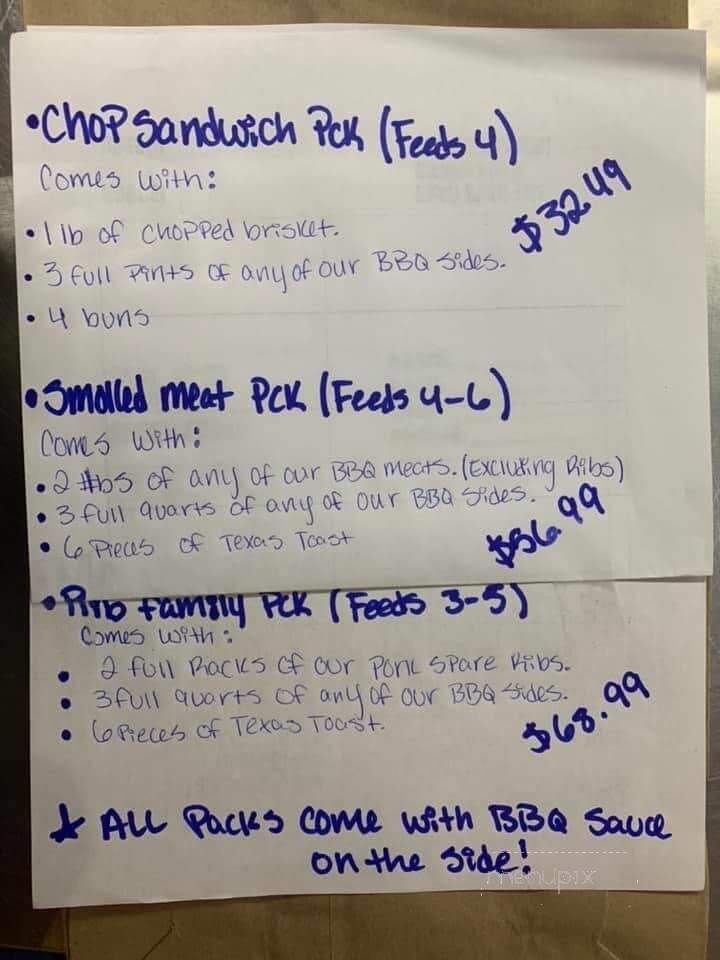 •Chop Sandwich Pck (Feeds 4)
Comes with:
$32.49
• 1 lb of chopped brisket.
• 3 full pints of any of our BBQ sides.
• 4 buns
• Smoked meat Pck (Feeds 4-6)
Comes with:
• 2 #bs of any of our BBQ meats. (Excluding Ribs)
• 3 full quarts of any of our BBQ sides.
• 6 Pieces of Texas Toast
• Rib family Pck (Feeds 3-5)
Comes with:
• 2 full Racks of our Pork Spare Ribs.
• 3 full quarts of any of our BBQ sides.
• 6 Pieces of Texas Toast.
$68.99
★ ALL Packs come with BBQ sauce
on the side!
menupix